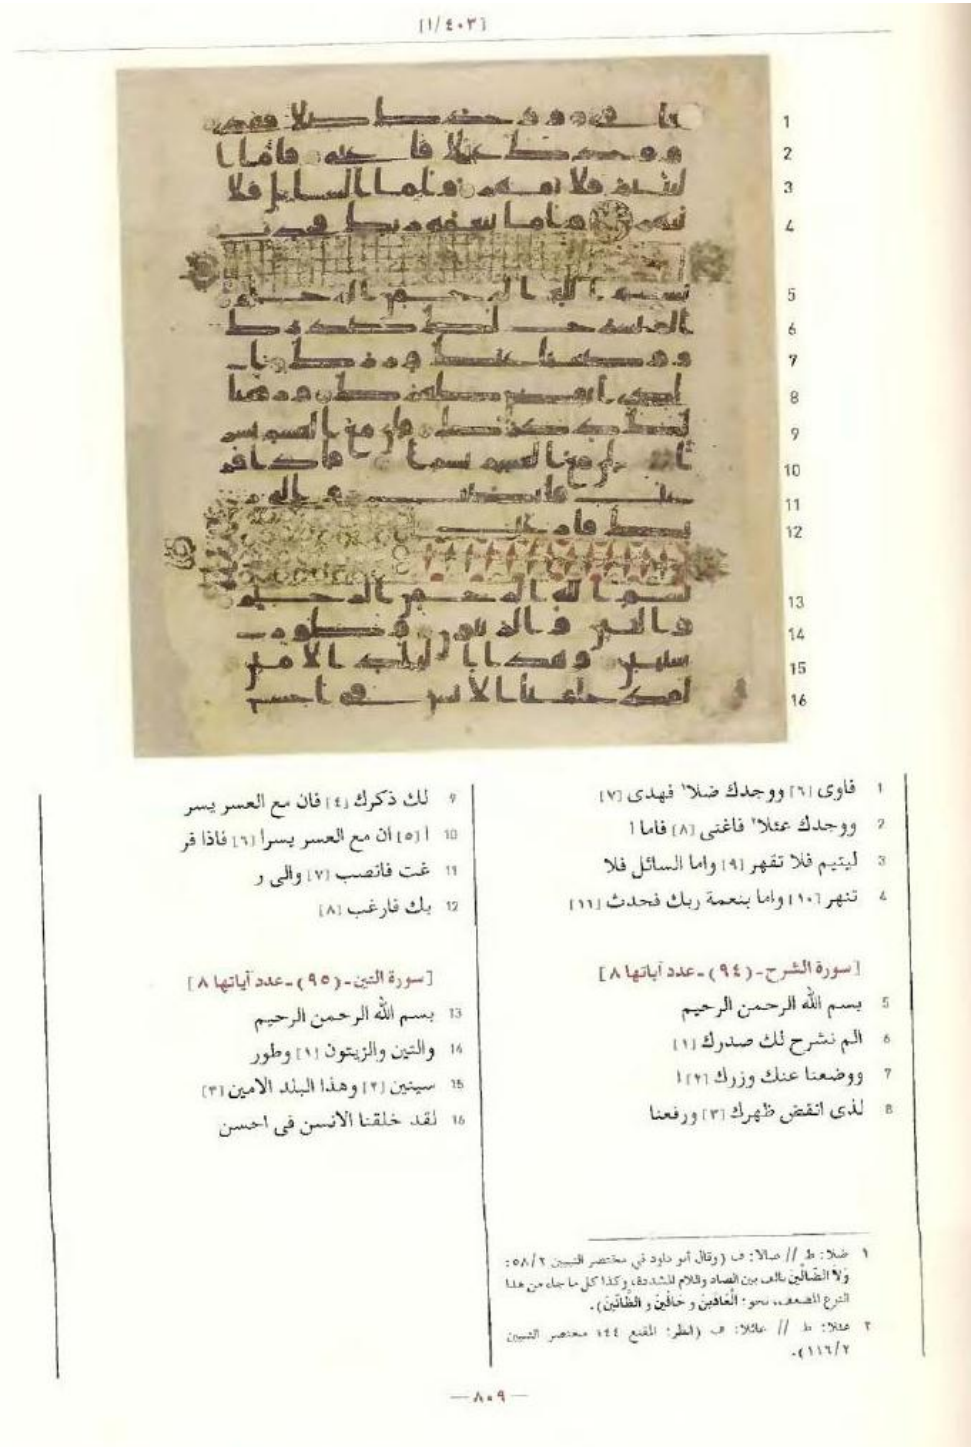 [١/٤٠٣]
1
2
3
4
5
6
7
8
9
10
11
12
13
14
15
16
1 فاوى [٦] ووجدك ضلا¹ فهدى [٧]
2 ووجدك عئلا² فاغنى [٨] فاما ا
3 ليتيم فلا تقهر [٩] واما السائل فلا
4 تنهر [١٠] واما بنعمة ربك فحدث [١١]
[سورة الشرح ـ (٩٤) ـ عدد آياتها ٨]
5 بسم الله الرحمن الرحيم
6 الم نشرح لك صدرك [١]
7 ووضعنا عنك وزرك [٢] ا
8 لذى انقض ظهرك [٣] ورفعنا
9 لك ذكرك [٤] فان مع العسر يسر
10 ا [٥] ان مع العسر يسرا [٦] فاذا فر
11 غت فانصب [٧] والى ر
12 بك فارغب [٨]
[سورة التين ـ (٩٥) ـ عدد آياتها ٨]
13 بسم الله الرحمن الرحيم
14 والتين والزيتون [١] وطور
15 سينين [٢] وهذا البلد الامين [٣]
16 لقد خلقنا الانسن فى احسن
١ ضلا: ط // ضالا: ف (وقال أبو داود في مختصر التبيين ٥٨/٢:
وَلاَ الضَّالِّينَ بالف بين الصاد واللام المشددة، وكذا كل ما جاء من هذا
النوع المضعف، نحو: الْعَادِّينَ و حَافِّينَ و الظَّانِّينَ).
٢ عئلا: ط // عائلا: ف (انظر: المقنع ٤٤؛ مختصر التبيين
١١٦/٢).
— ٨٠٩ —